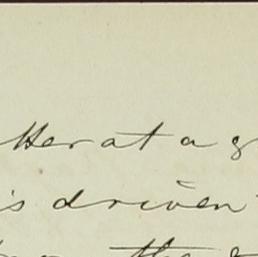 at a g
is driven
the